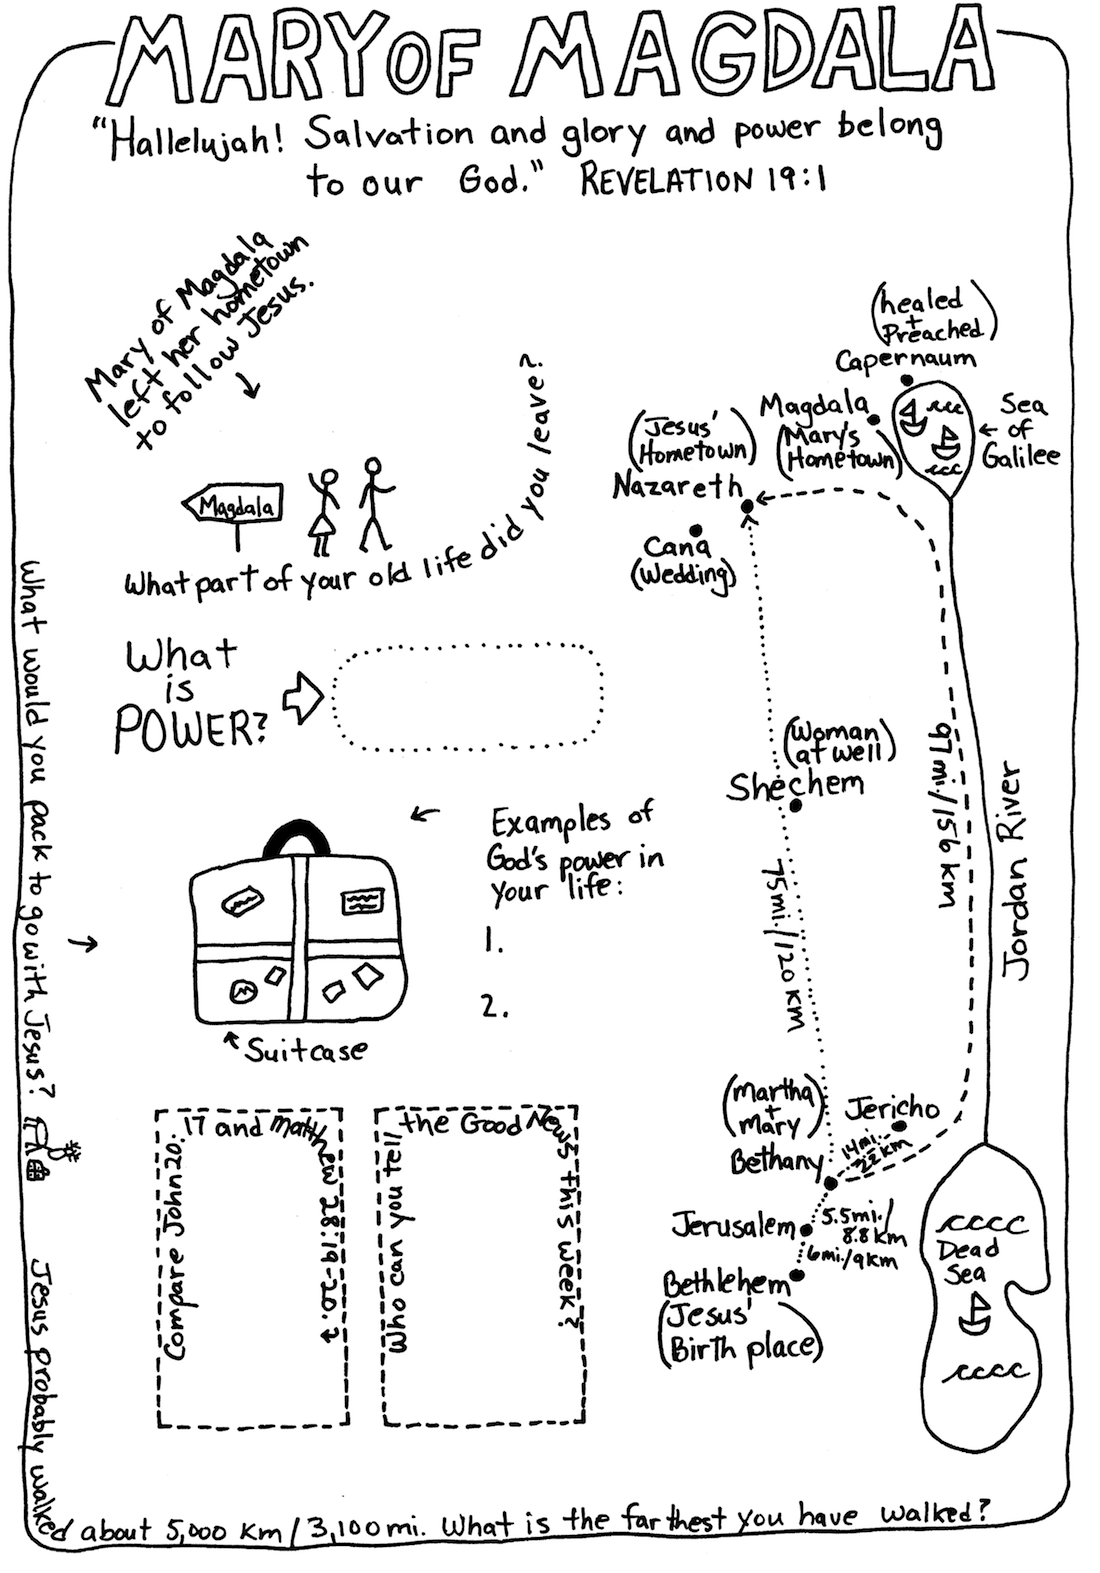 MARY OF MAGDALA
"Hallelujah! Salvation and glory and power belong
to our God." REVELATION 19:1
Mary of Magdala
left her hometown
to follow Jesus.
Magdala
What part of your old life did you leave?
What
is
POWER?
Examples of
God's power in
your life:
1.
2.
Suitcase
What would you pack to go with Jesus?
Compare John 20:17 and Matthew 28:19-20.
Who can you tell the Good News this week?
(healed
+
Preached)
Capernaum
Magdala
(Mary's
Hometown)
Sea
of
Galilee
(Jesus'
Hometown)
Nazareth
Cana
(Wedding)
(Woman
at well)
Shechem
97mi./156 km
75mi./120 km
Jordan River
(Martha
+
Mary)
Bethany
Jericho
14mi.
22km
Jerusalem
5.5mi./
8.8km
6mi./9km
Bethlehem
(Jesus'
Birth place)
Dead
Sea
Jesus probably walked about 5,000 km/3,100mi. What is the farthest you have walked?